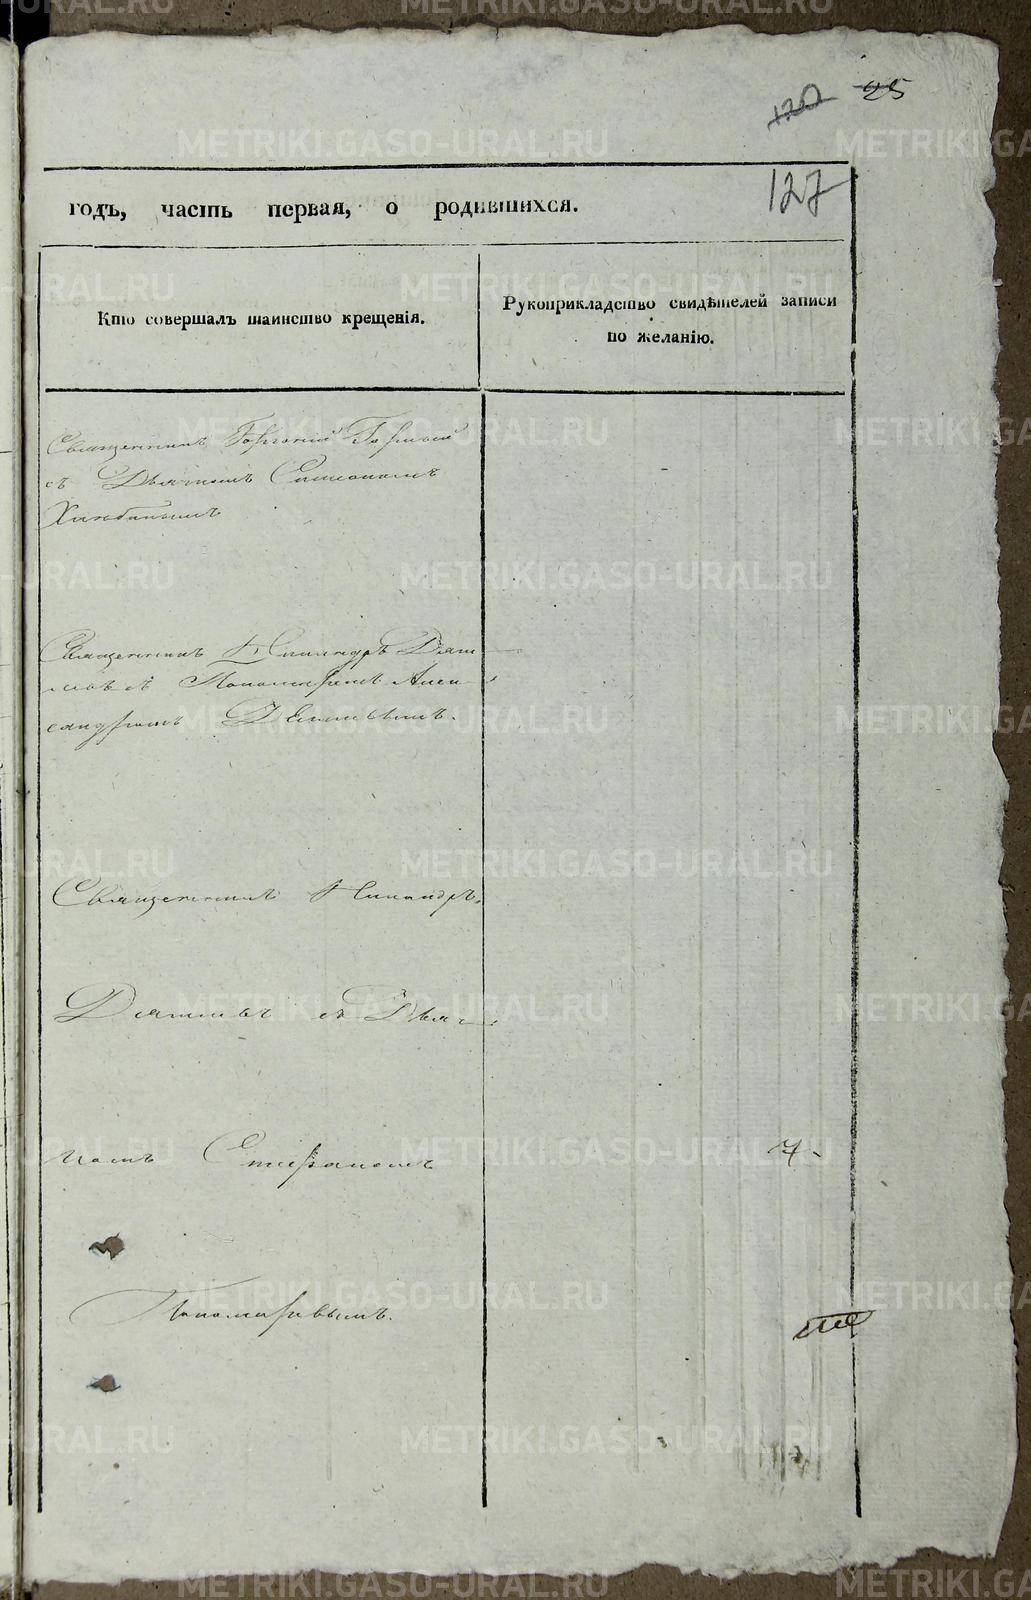 120 25
127
годъ, часть первая, о родившихся.
Кто совершалъ таинство крещенія.
Рукоприкладство свидѣтелей записи
по желанію.
Священникъ Горгоній Горный
съ Дьячкомъ Симеономъ
Хлѣбинымъ
Священникъ Никандръ Дяги
левъ съ Пономаремъ Алек
сандромъ
Священникъ Никандръ
Дягилевъ съ Дьяч
комъ Стефаномъ
7.
Пономаревымъ.
METRIKI.GASO-URAL.RU